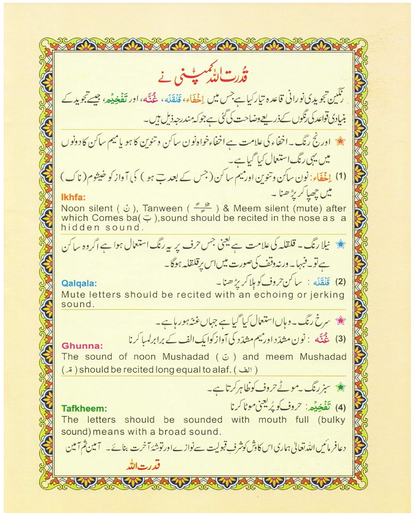 قدرت اللہ کمپنی نے
رنگین تجویدی نورانی قاعدہ تیار کیا ہے جس میں اِخْفَاء، قَلْقَلَه، غُنَّه، اور تَفْخِيْم، جیسے تجوید کے
بنیادی قواعد کی رنگوں کے ذریعے وضاحت کی گئی ہے جو کہ مندرجہ ذیل ہیں۔
اورنج رنگ۔ اخفاء کی علامت ہے اخفاء خواہ نون ساکن و تنوین کا ہو یا میم ساکن کا دونوں
میں یہی رنگ استعمال کیا گیا ہے۔
(1) اِخْفَاء: نون ساکن و تنوین اور میم ساکن (جس کے بعد ب ہو) کی آواز کو خیشوم (ناک)
میں چھپا کر پڑھنا۔
Ikhfa:
Noon silent ( نْ ), Tanween ( ًٌٍ ) & Meem silent (mute) after
which Comes ba( بَ ),sound should be recited in the nose as a
hidden sound.
نیلا رنگ۔ قلقلہ کی علامت ہے یعنی جس حرف پر یہ رنگ استعمال ہوا ہے اگر وہ ساکن
ہے تو۔ فبہا۔ ورنہ وقف کی صورت میں اس پر قلقلہ ہوگا۔
(2) قَلْقَلَه: ساکن حروف کو ہلا کر پڑھنا۔
Qalqala:
Mute letters should be recited with an echoing or jerking
sound.
سرخ رنگ۔ وہاں استعمال کیا گیا ہے جہاں غنہ ہو رہا ہے۔
(3) غُنَّه: نون مشدّد اور میم مشدّد کی آواز کو ایک الف کے برابر لمبا کرنا
Ghunna:
The sound of noon Mushadad ( نّ ) and meem Mushadad
( مّ ) should be recited long equal to alaf. ( الف )
سبز رنگ۔ موٹے حروف کو ظاہر کرتا ہے۔
(4) تَفْخِيْم: حروف کو پُر یعنی موٹا کرنا
Tafkheem:
The letters should be sounded with mouth full (bulky
sound) means with a broad sound.
دعا فرمائیں اللہ تعالیٰ ہماری اس کاوش کو شرفِ قبولیت سے نوازے اور توشۂ آخرت بنائے۔ آمین ثم آمین
قدرت اللہ